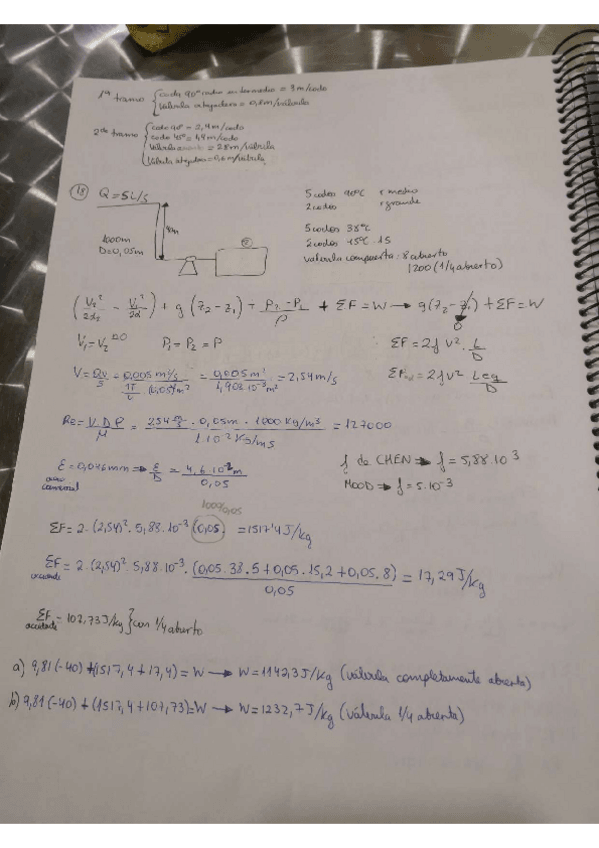 1er tramo { codo 90º radio intermedio = 3m/codo
válvula atajadera = 0,5m/válvula
2do tramo { codo 90º = 2,4m/codo
codo 45º = 1,4m/codo
Válvula = 28m/válvula
Válvula atajadera = 0,6m/válvula
18 Q = 5L/s
4m
1000m
D=0,05m
5 codos 90ºC r medio
2 codos r grande
5 codos 38ºC
2 codos 45ºC 15
válvula compuerta: 8 abierto
1200 (1/4 abierto)
(V2²/2α2 - V1²/2α) + g(z2-z1) + P2-P1/ρ + ΣF = W → g(z2-z1) + ΣF = W
0
V1 = V2 P1 = P2 = P ΣF = 2f V² · L/D
V = Qv/S = 0,005 m³/s / π/4 (0,05)² m² = 0,005 m³ / 1,963·10⁻³ m² = 2,54 m/s ΣF = 2f V² Leq/D
Re = V·D·ρ/μ = 2,54 m/s · 0,05m · 1000 Kg/m³ / 1·10⁻³ Kg/ms = 127000
ε = 0,046mm ⇒ ε/D = 4,6·10⁻²m / 0,05
acero comercial
f de CHEN → f = 5,88·10⁻³
MOOD → f = 5·10⁻³
1000/0,05
ΣF = 2·(2,54)²·5,88·10⁻³ (0,05) = 1517'4 J/kg
ΣF accidente = 2·(2,54)²·5,88·10⁻³ · (0,05·38·5 + 0,05·15·2 + 0,05·8) / 0,05 = 17,29 J/kg
ΣF accidente = 107,73 J/kg } con 1/4 abierto
a) 9,81(-40) + (1517,4+17,4) = W → W = 1142,3 J/kg (válvula completamente abierta)
b) 9,81(-40) + (1517,4+107,73) = W → W = 1232,7 J/kg (válvula 1/4 abierta)